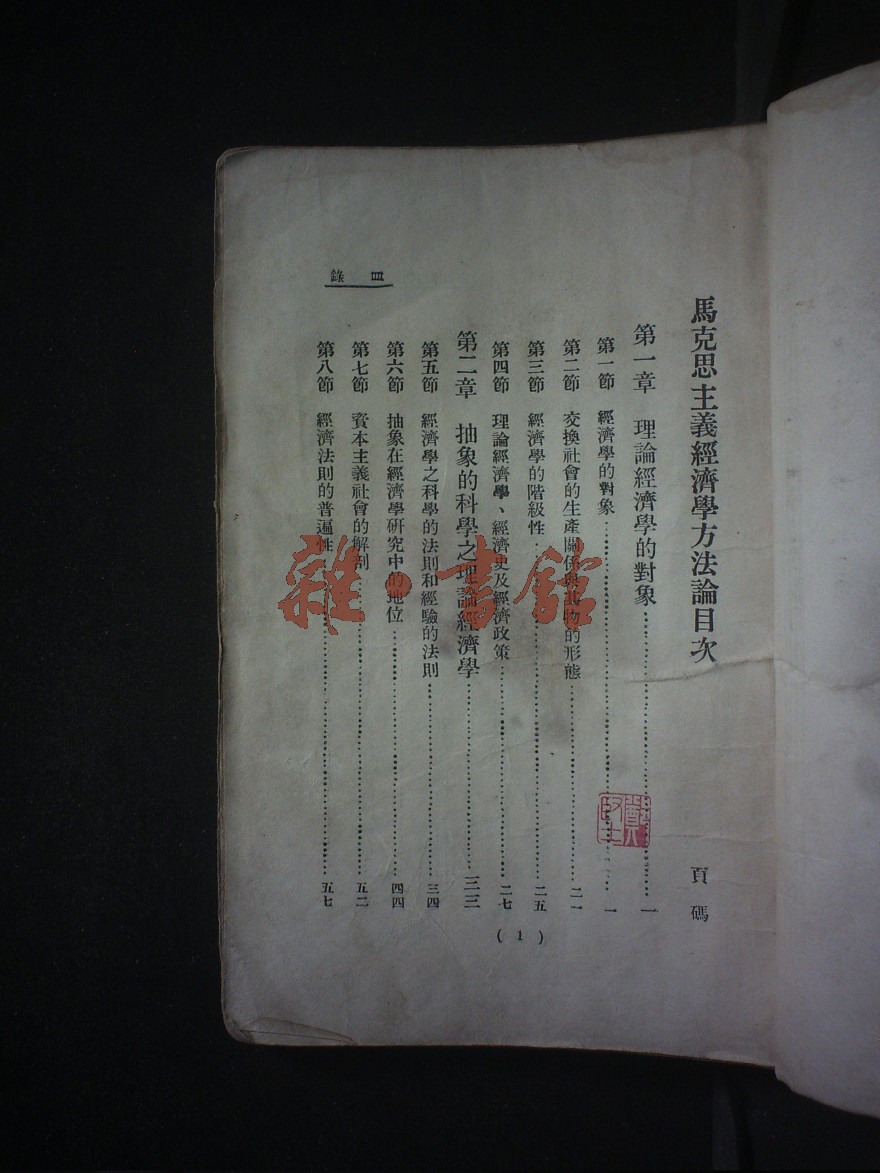 馬克思主義經濟學方法論目次
頁碼
第一章 理論經濟學的對象……一
第一節 經濟學的對象……一
第二節 交換社會的生產關係與其物的形態……二一
第三節 經濟學的階級性……二五
第四節 理論經濟學、經濟史及經濟政策……二七
第二章 抽象的科學之理論經濟學……三三
第五節 經濟學之科學的法則和經驗的法則……三四
第六節 抽象在經濟學研究中的地位……四四
第七節 資本主義社會的解剖……五二
第八節 經濟法則的普遍性……五七
目錄
(1)
雜·書館